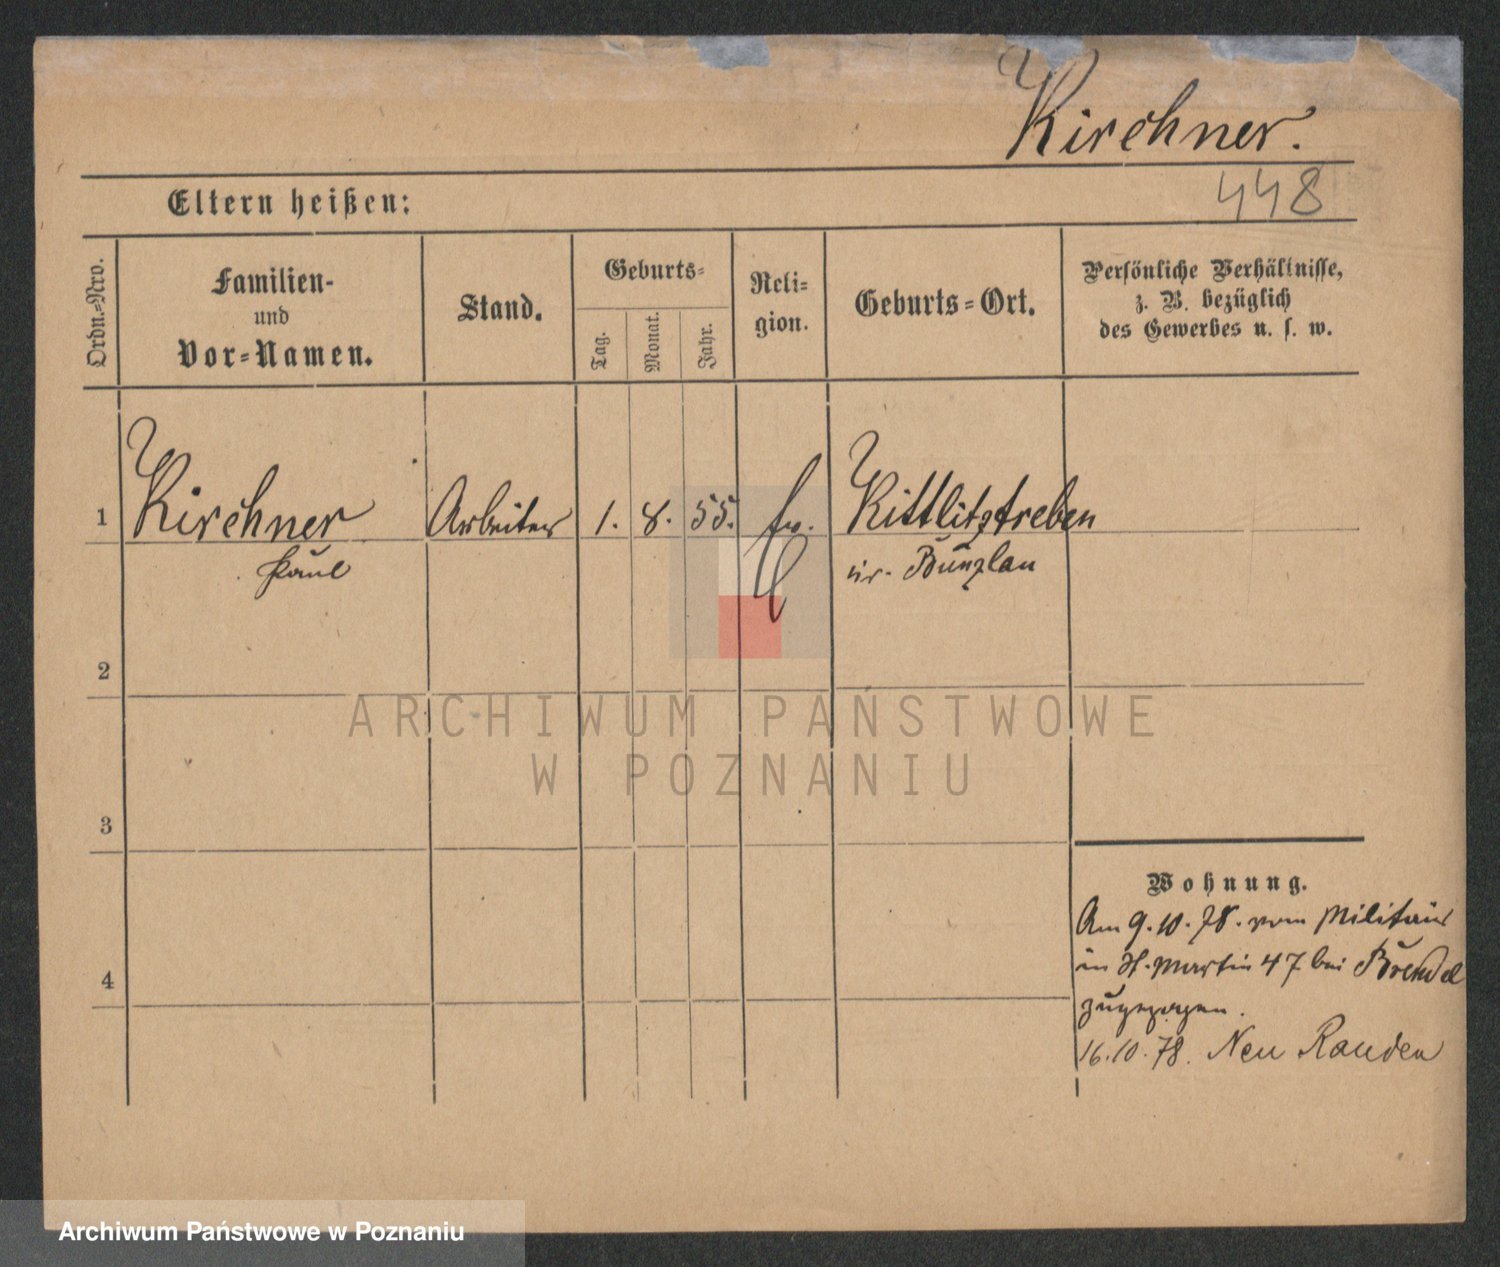 Kirchner.
448
Eltern heißen:
Ordn.-Nro.
Familien-
und
Vor-Namen.
Stand.
Geburts-
Tag.
Monat.
Jahr.
Reli-
gion.
Geburts-Ort.
Persönliche Verhältnisse,
z. B. bezüglich
des Gewerbes u. s. w.
1
Kirchner
Paul
Arbeiter
1.
8.
55.
ev.
Kittlitztreben
Kr. Bunzlau
2
3
4
Wohnung.
Am 9.10.78. vom Militair
in St. Martin 47 bei Brendel
zugezogen.
16.10.78. Neu
ARCHIWUM PAŃSTWOWE
W POZNANIU
Archiwum Państwowe w Poznaniu